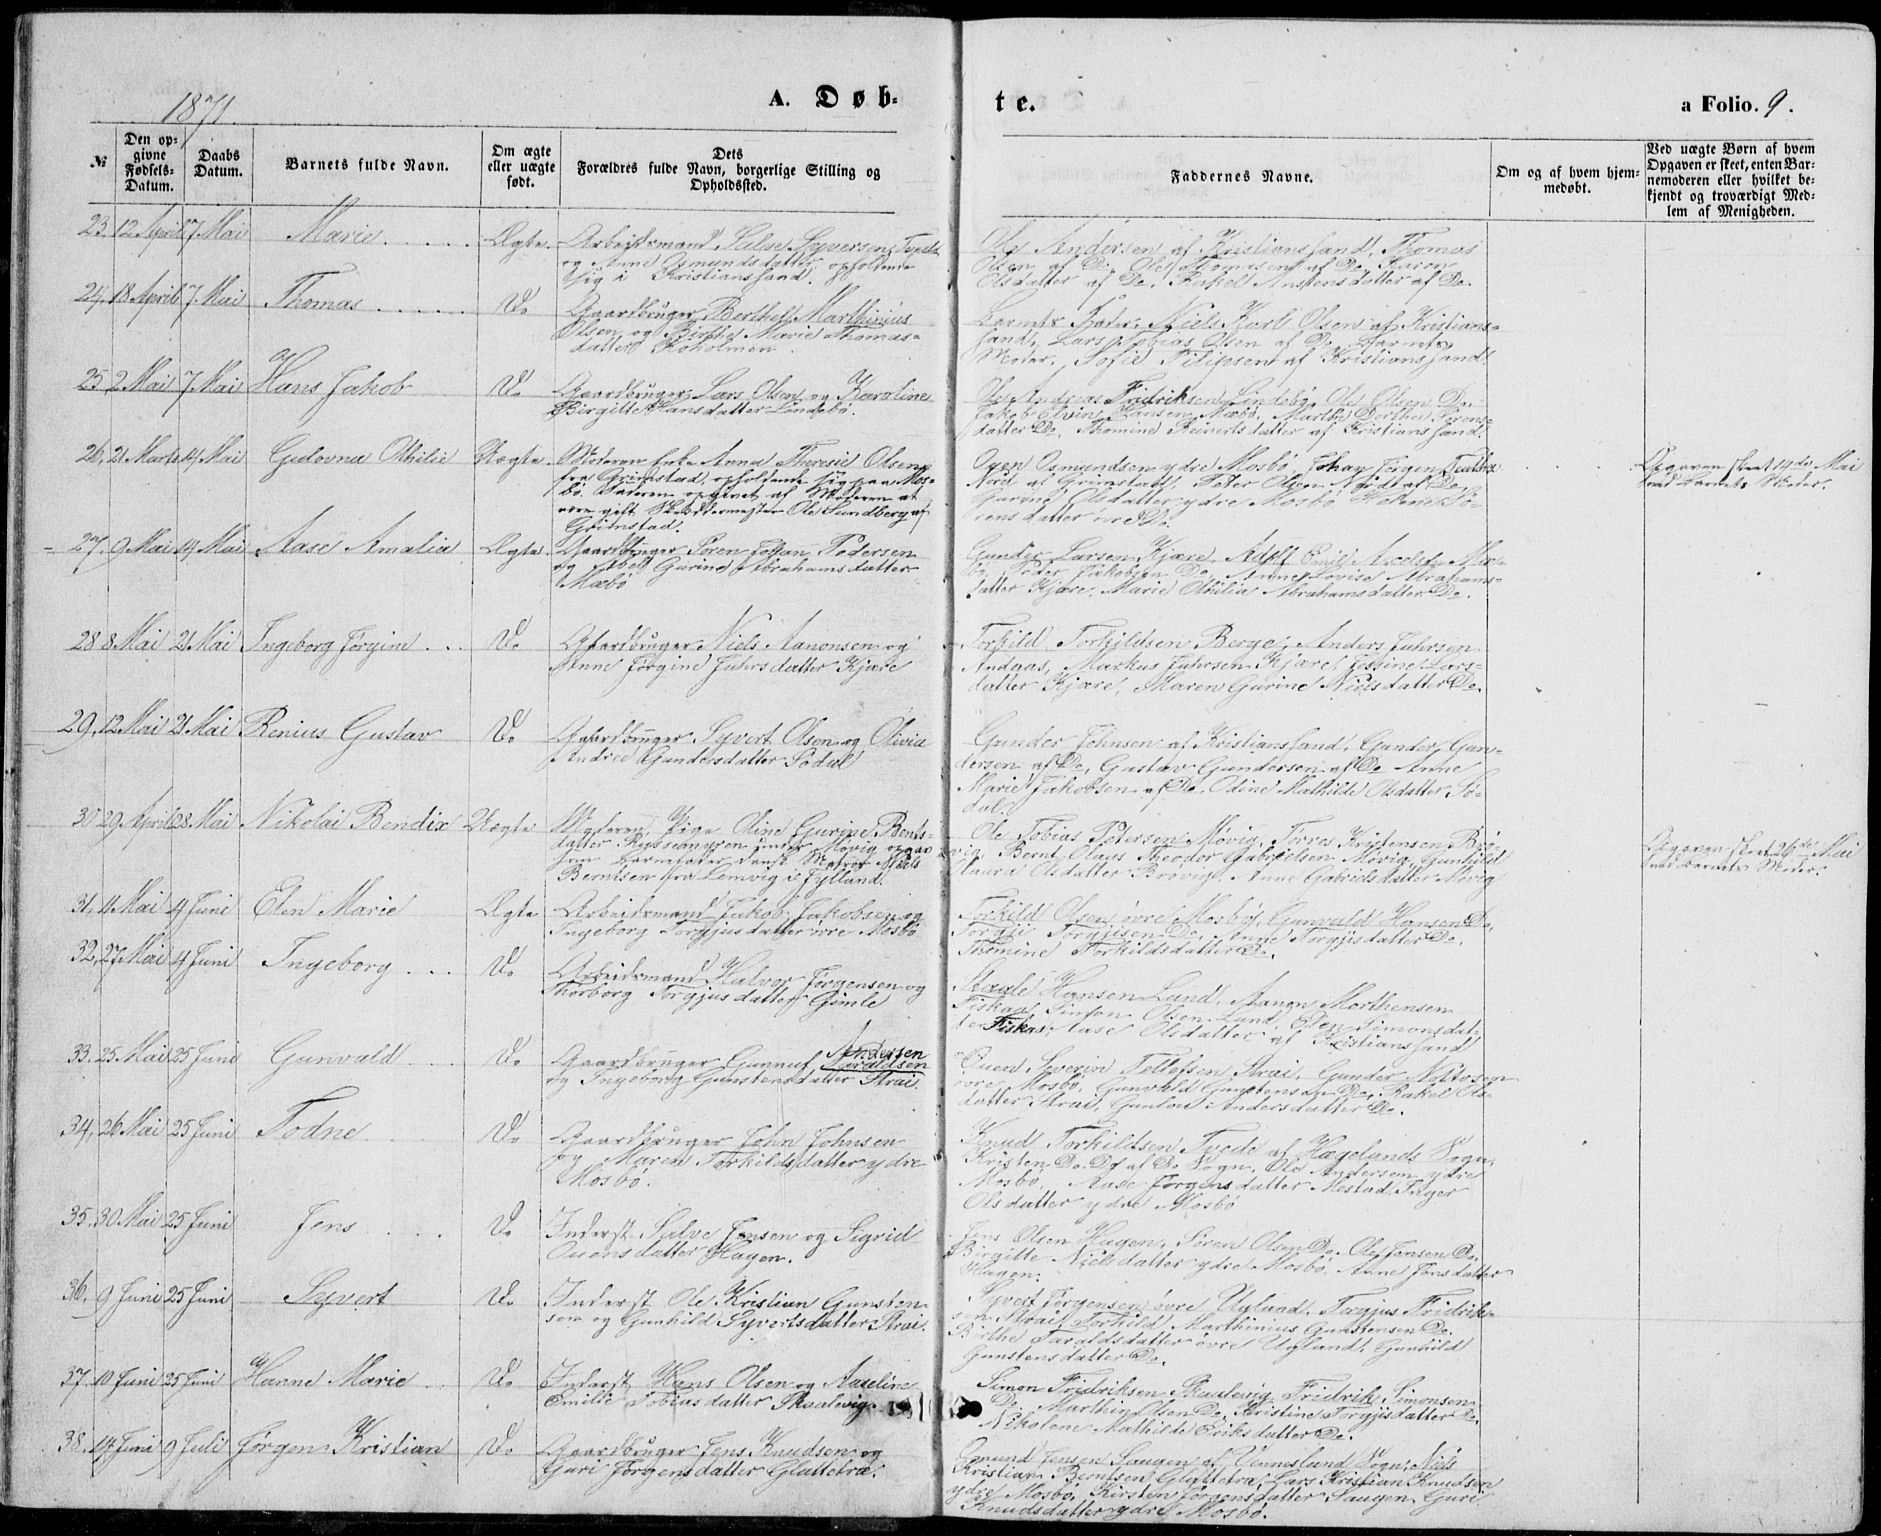 1871
A. Døb-
te.
a Folio. 9.
№
Den op-
givne
Fødsels-
Datum.
Daabs
Datum.
Barnets fulde Navn.
Om ægte
eller uægte
født.
Dets
Forældres fulde Navn, borgerlige Stilling og
Opholdssted.
Faddernes Navne.
Om og af hvem hjem-
medøbt.
Ved uægte Børn af hvem
Opgaven er skeet, enten Bar-
nemoderen eller hvilket be-
kjendt og troværdigt Med-
lem af Menigheden.
23. 12 April 7. Mai Marie Ægte. Arbeidsmand Salve Syversen
og Anne Osmundsdatter, opholdende
sig i Kristianssand.
Ole Andersen af Kristianssand, Thomas
Olsen af Do, Ole Thomasen af Do, Karen
Olsdatter af Do, Rakel Anstensdatter af Do.
24. 18 April 7. Mai Thomas Do Gaardbruger Berthel Marthinius
Olsen og Birthe Marie Thomas-
datter Roholmen.
Barnets Fader, Niels Karl Olsen af Kristians-
sand, Lars Tobias Olsen af Do, Barnets
Moder, Sofie Filipsen af Kristianssand.
25. 2 Mai 7. Mai Hans Jakob Do Gaardbruger Lars Olsen og Karoline
Birgitte Hansdatter Lindebø.
Ole Andreas Fridriksen Lindebø, Ole Olsen Do,
Jakob Elvin Hansen Mæbø, Marthe Dorthea Sørens-
datter Do, Thomine Reinertsdatter af Kristianssand.
26. 21 Marts 14 Mai Gulovna Othilie Uægte. Moderen Enke Anna Theresie Olsen,
fra Grimstad, opholdende sig paa Mos-
bø. Faderen opgivet af Moderen at
være gift Skræddermester Ole Sundberg af
Grimstad.
Osmundsen ydre Mosbø, Johan Jørgen
Nord af Grimstad, Peter Olsen af Do,
Gurine Olsdatter ydre Mosbø, Helene Sø-
rensdatter øvre Do.
Opgaven skeet 14de Mai
ved Barnets Moder.
27. 9 Mai 14 Mai Aase Amalia Ægte. Gaardbruger Søren Johan Pedersen
og Abel Gurine Abrahamsdatter
Mæbø
Gunder Larsen Kjære, Adolf Emil Axelsen Mæ-
bø, Peder Jakobsen Do, Anne Lovise Abrahams-
datter Kjære, Marie Othilia Abrahamsdatter Do.
28 8 Mai 21 Mai Ingeborg Jørgine Do Gaardbruger Niels Aanonsen og
Anne Jørgine Juhrsdatter Kjære
Torkild Torkildsen Berge, Anders Juhrsen
Andaas, Markus Juhrsen Kjære, Josine Lars-
datter Kjære, Maren Gurine Nielsdatter Do.
29, 12 Mai 21 Mai Renius Gustav Do Gaardbruger Syvert Olsen og Olivia
Andrea Gundersdatter Sødal
Gunder Johnsen af Kristianssand, Gunder Gun-
dersen af Do, Gustav Gundersen af Do Anne
Marie Jakobsen af Do, Odine Mathilde Olsdatter Sø-
dal.
30 29 April 28 Mai Nikolai Bendix Uægte Moderen, Pige Oline Gurine Bents-
datter under Møvig opgav
som Barnefader dansk Matros Niels
Berntsen fra Lemvig i Jylland.
Ole Tobias Petersen Møvig, Torres Kristensen Brø-
vig, Bernt Olaus Theodor Gabrielsen Møvig, Gunhild
Laura Olsdatter Brøvig, Anne Gabrielsdatter Møvig
Opgaven skeet 26de Mai
ved Barnets Moder.
31, 11 Mai 4 Juni Elen Marie Ægte Arbeidsmand Jakob Jakobsen og
Ingeborg Torgjusdatter øvre Mosbø
Torkild Olsen øvre Mosbø, Gunvald Hansen Do,
Torgju Torgjusen Do, Anne Torgjusdatter Do,
Thomine Torkildsdatter Do.
32, 27 Mai 4 Juni Ingeborg Do Arbeidsmand Halvor Jørgensen og
Thorborg Torgjusdatter Gimle
Staale Hansen Lund, Aanon Morthensen
Fiskaa, Simon Olsen Lund, Elen Simonsdat-
ter Fiskaa, Aase Olsdatter af Kristianssand
33. 25 Mai 25 Juni Gunvald Do Gaardbruger Gunnuf Andersen
og Ingeborg Gunstensdatter Strai.
Ouen Severin Tellefsen Strai, Gunder
øvre Mosbø, Gunvald Gunstensen Do, Rakel Ols-
datter Strai, Gunlou Andersdatter Do.
34, 26 Mai 25 Juni Todne Do Gaardbruger John Johnsen
og Maren Torkildsdatter ydre
Mosbø.
Knud Torkildsen Tvede af Hægelands Sogn,
Kristen Do. Do af Do Sogn, Ole Andersen ydre
Mosbø, Aase Jørgensdatter Mestad, Inger
Olsdatter ydre Mosbø
35. 30 Mai 25 Juni Jens Do Inderst Salve Jensen og Sigrid
Ouensdatter Hagen.
Jens Olsen Hagen, Søren Olsen Do. Ole Jensen Do.
Birgitte Nielsdatter ydre Mosbø, Anne Jensdatter
Hagen.
36. 9 Juni 25 Juni Syvert Do Inderst Ole Kristian Gunsten-
sen og Gunhild Syvertsdatter Strai.
Syvert Jørgensen øvre Uglund, Torgjus Fridrik-
sen Strai, Torkild Marthinius Gunstensen Do.
Birthe Taraldsdatter øvre Uglund, Gunhild
Gunstensdatter Do.
37. 10 Juni 25 Juni Hanne Marie Do Inderst Hans Olsen og Aaseline
Emilie Tobiasdatter Skaalevig.
Simon Fridriksen Skaalevig, Fridrik Simonsen
Do, Marthin Olsen Do, Kristine Torgjusdatter Do,
Nikolene Mathilde Eriksdatter Do.
38. 14 Juni 9 Juli Jørgen Kristian Do Gaardbruger Jens Knudsen og
Guri Jørgensdatter Glattetræ.
Omund Jensen Saugen af Vennesland Sogn, Niels
Kristian Berntsen Glattetræ, Lars Kristian Knudsen
ydre Mosbø, Kirsten Jørgensdatter Saugen, Guri
Knudsdatter ydre Mosbø.